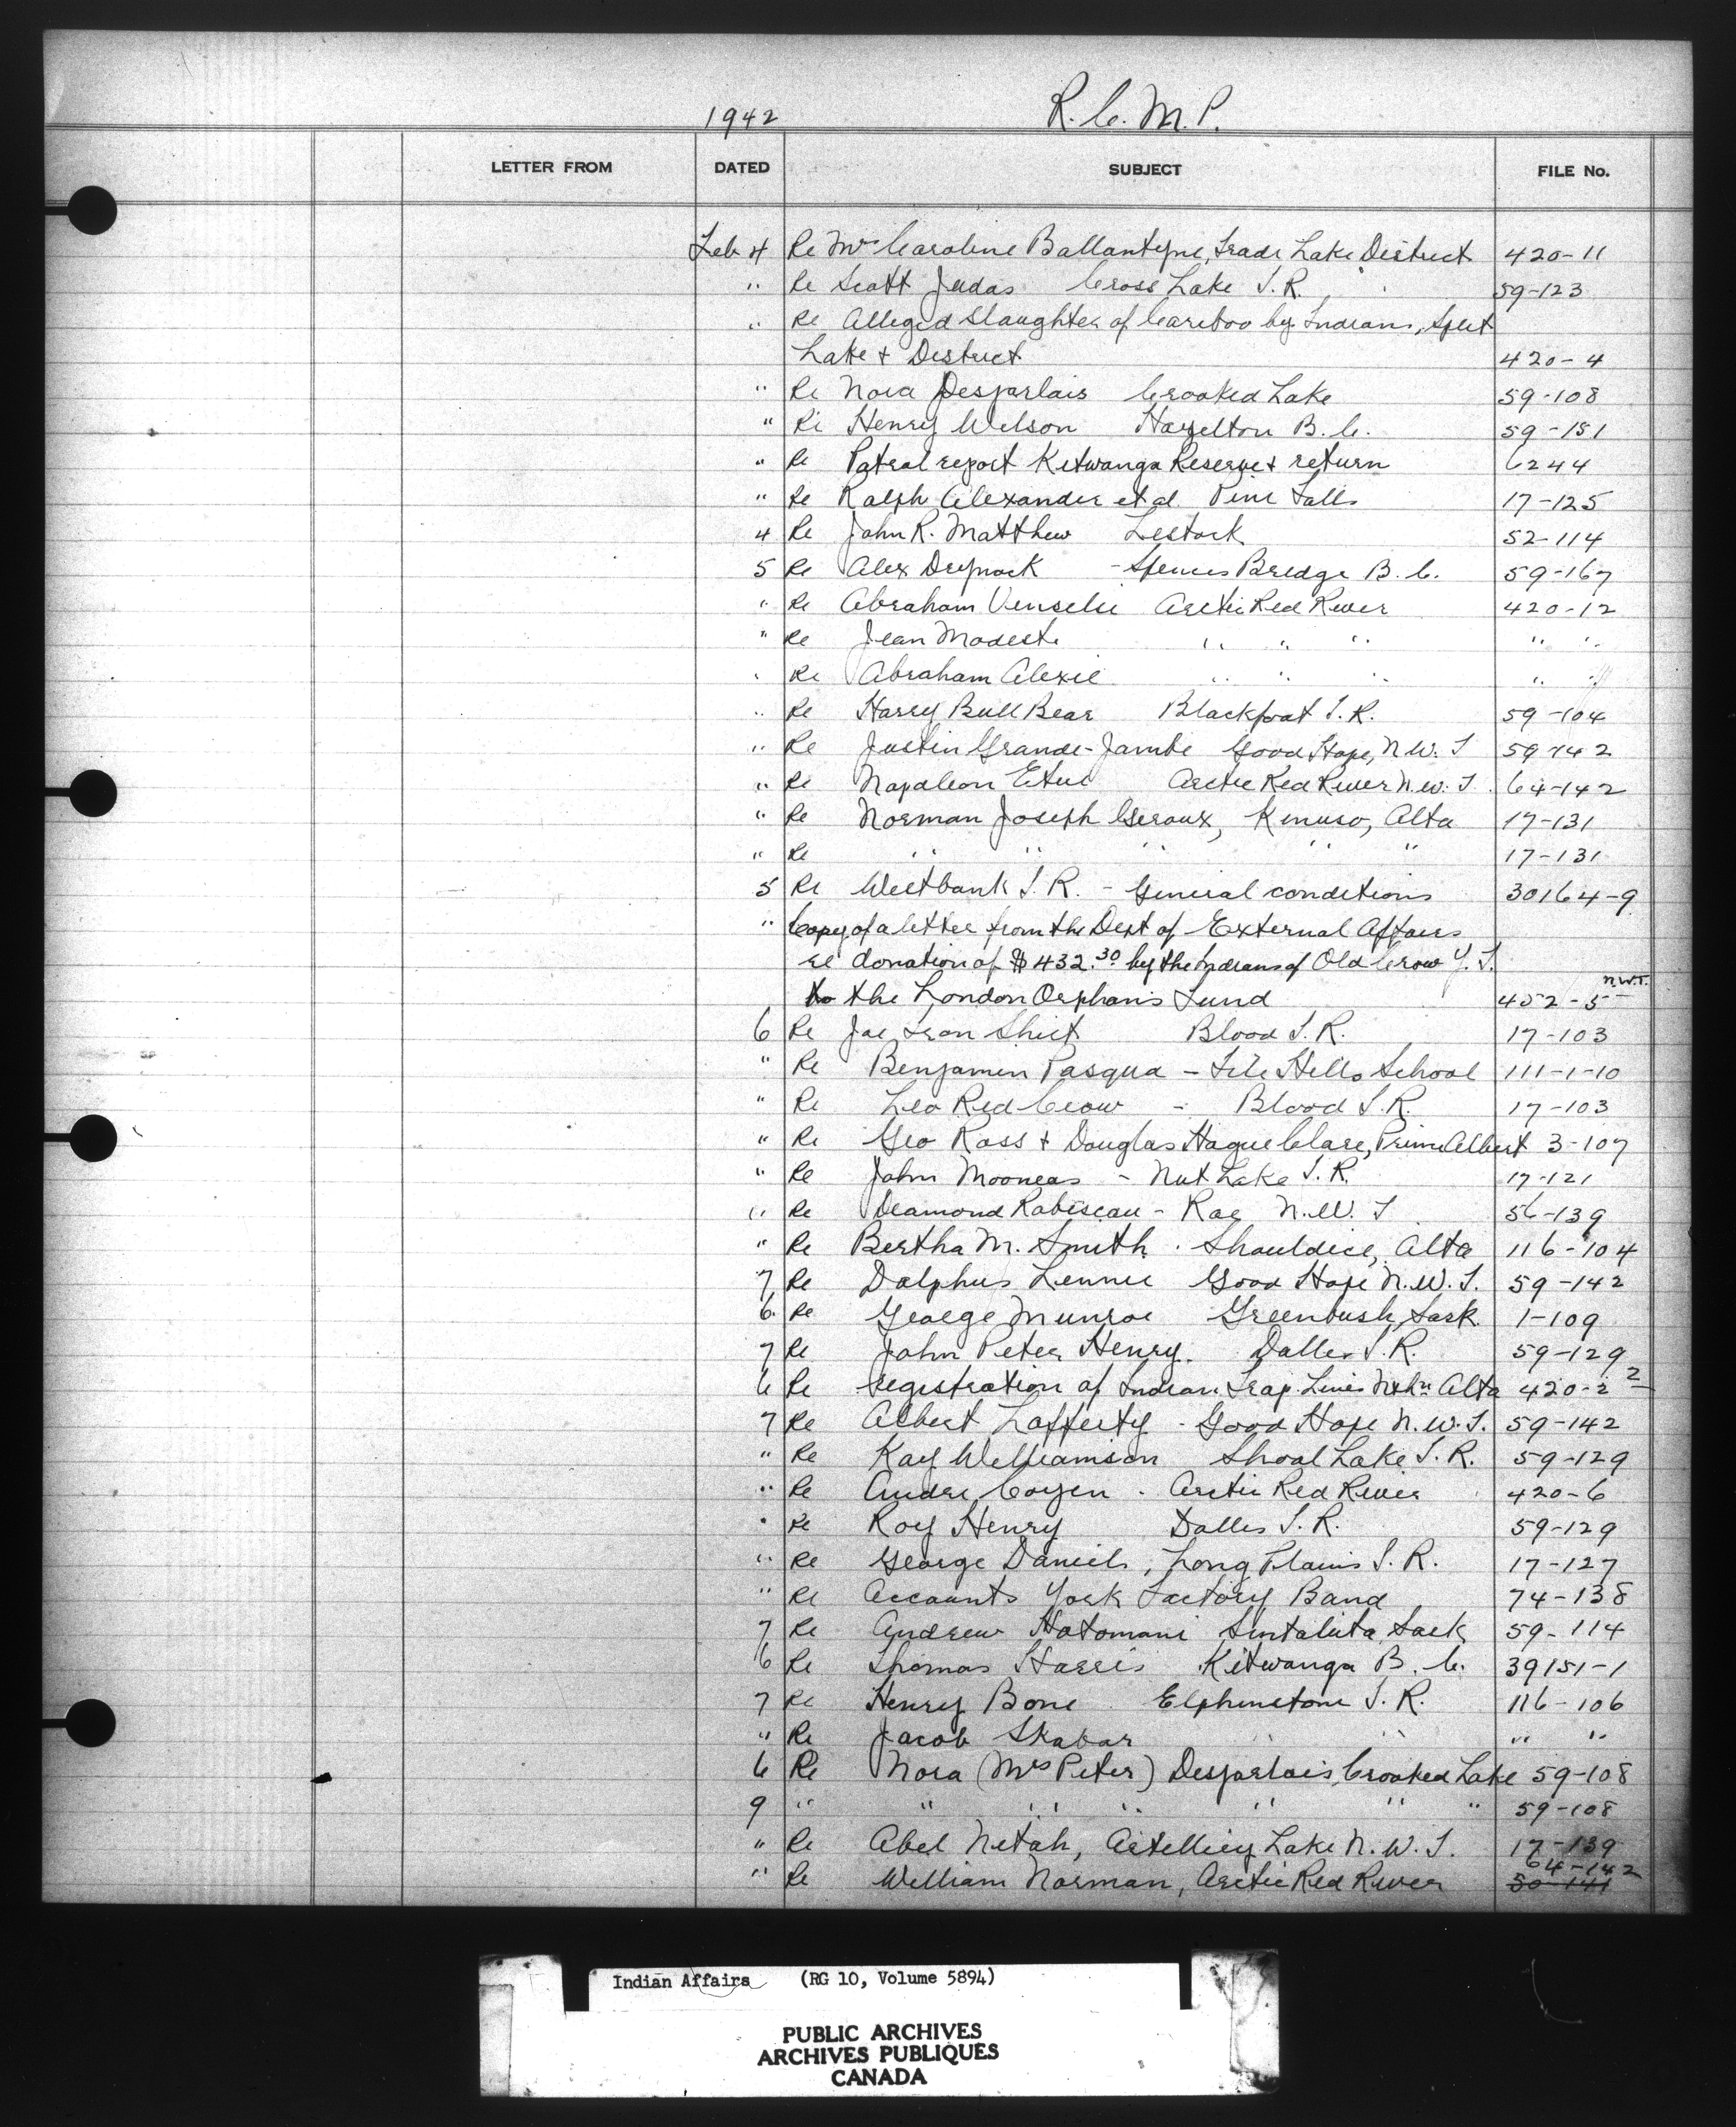 1942 R.C.M.P.
LETTER FROM DATED SUBJECT FILE No.
Feb 4 Re Mrs Caroline Ballantyne, Trade Lake District 420-11
" Re Scott Judas Cross Lake I.R. 59-123
" Re Alleged Slaughter of Cariboo by Indians, Split
Lake & District 420-4
" Re Nora Desjarlais Crooked Lake 59-108
" Re Henry Wilson Hazelton B.C. 59-151
" Re Patrol report Kitwanga Reserve & return 6244
" Re Ralph Alexander et al. Pine Falls 17-125
4 Re John R. Matthew Lestock 52-114
5 Re Alex - Spences Bridge B.C. 59-167
" Re Abraham Arctic Red River 420-12
" Re Jean Modeste " " " " "
" Re Abraham Alexie " " " " "
" Re Harry Bull Bear Blackfoot I.R. 59-104
" Re Justin Grande-Jambe Good Hope, N.W.T 59-142
" Re Napoleon Etue Arctic Red River N.W.T. 64-142
" Re Norman Joseph Giroux, Kinuso, Alta 17-131
" Re " " " " " 17-131
5 Re Westbank I.R. - General conditions 30164-9
" Copy of a letter from the Dept of External Affairs
re donation of $432.30 by the Indians of Old Crow Y.T.
to the London Orphans Fund N.W.T. 452-5
6 Re Joe Iron Shirt Blood I.R. 17-103
" Re Benjamin Pasqua - File Hills School 111-1-10
" Re Leo Red Crow - Blood I.R. 17-103
" Re Geo Ross & Douglas Hague Clare, Prince Albert 3-107
" Re John Mooneas - Nut Lake I.R. 17-121
" Re Deamond Rabiscau - Rae N.W.T 56-139
" Re Bertha M. Smith. Shouldice, Alta 116-104
7 Re Dolphus Lennie Good Hope N.W.T. 59-142
6 Re George Munroe Greenbush, Sask. 1-109
7 Re John Peter Henry. Dalles I.R. 59-129
6 Re registration of Indian Trap Lines Nthn Alta 420-2 2
7 Re Albert Lafferty - Good Hope N.W.T. 59-142
" Re Kay Williamson Shoal Lake I.R. 59-129
" Re Andre Coyen - Arctic Red River 420-6
" Re Roy Henry Dalles I.R. 59-129
" Re George Daniels, Long Plains I.R. 17-127
" Re Accounts York Factory Band 74-138
7 Re Andrew Hotomani Sintaluta, Sask 59-114
6 Re Thomas Harris Kitwanga B.C. 39151-1
7 Re Henry Bone Elphinstone I.R. 116-106
" Re Jacob Skabar " " " "
6 Re Nora (Mrs Peter) Desjarlais, Crooked Lake 59-108
9 " " " " " " " 59-108
" Re Abel Netah, Lake N.W.T. 17-139
" Re William Norman, Arctic Red River 64-142
Indian Affairs (RG 10, Volume 5894)
PUBLIC ARCHIVES
ARCHIVES PUBLIQUES
CANADA